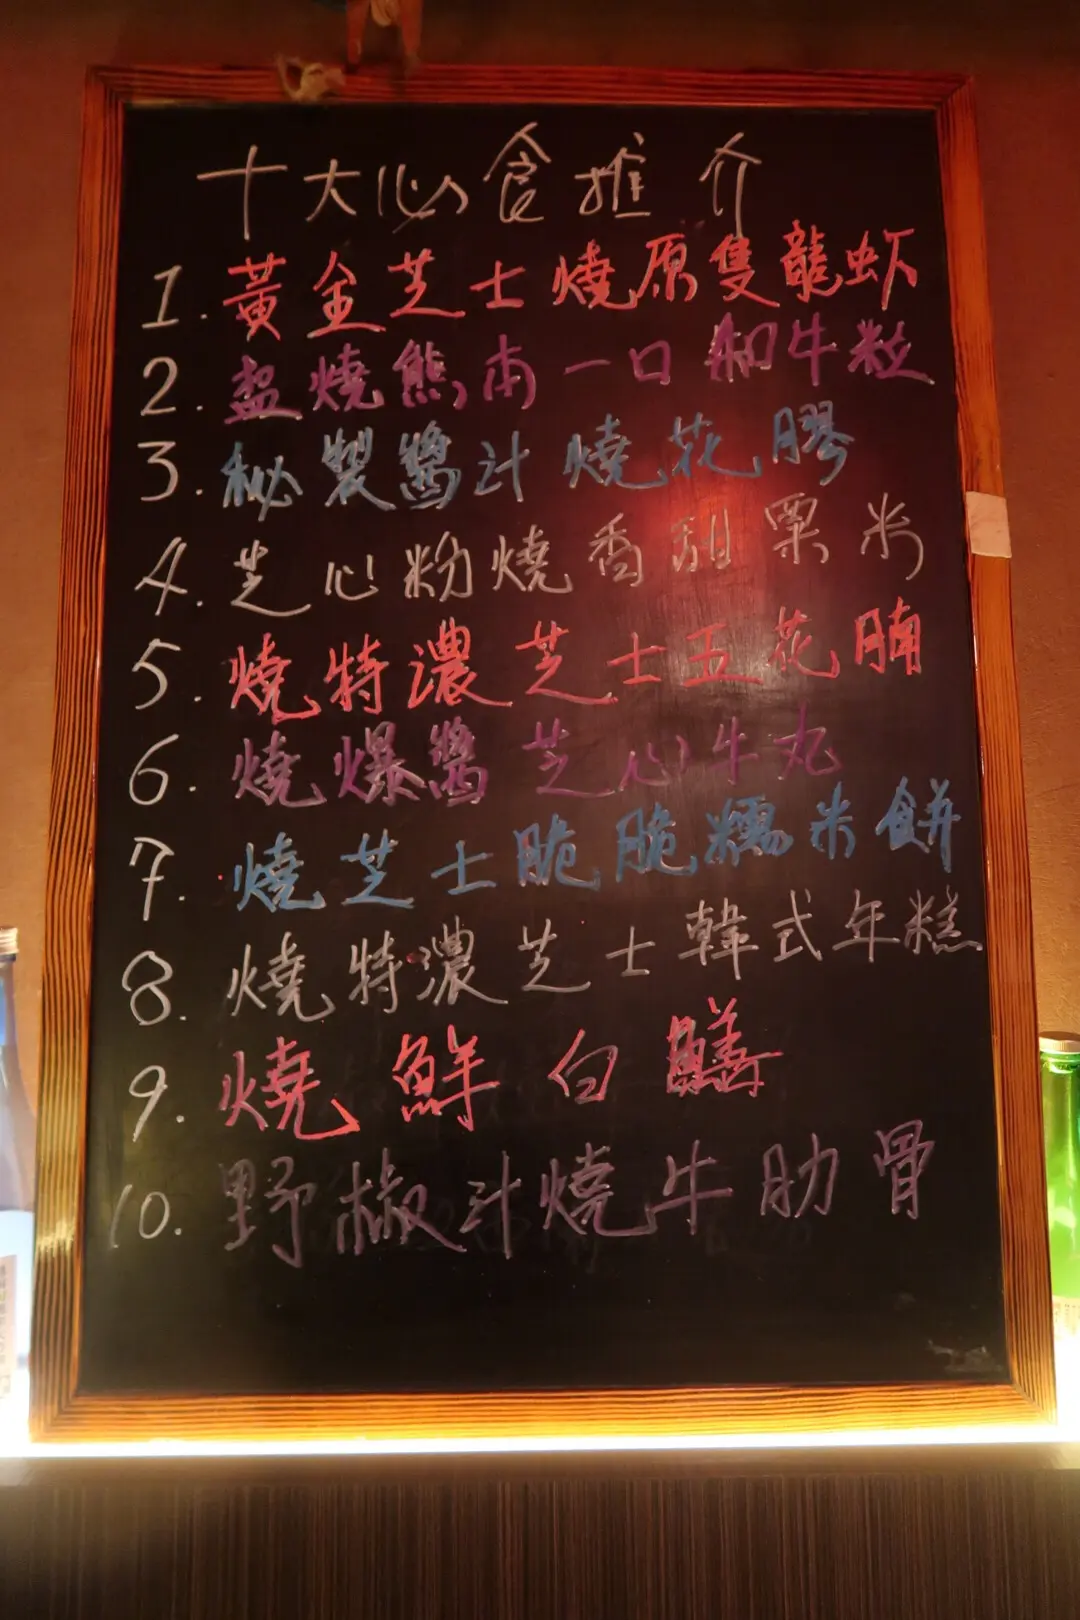 十大心食推介
1. 黃金芝士燒原隻龍虾
2. 盐燒熊本一口和牛粒
3. 秘製醬汁燒花膠
4. 芝心粉燒香甜粟米
5. 燒特濃芝士五花腩
6. 燒爆醬芝心牛丸
7. 燒芝士脆脆糯米餅
8. 燒特濃芝士韓式年糕
9. 燒鮮白鱔
10. 野椒汁燒牛肋骨